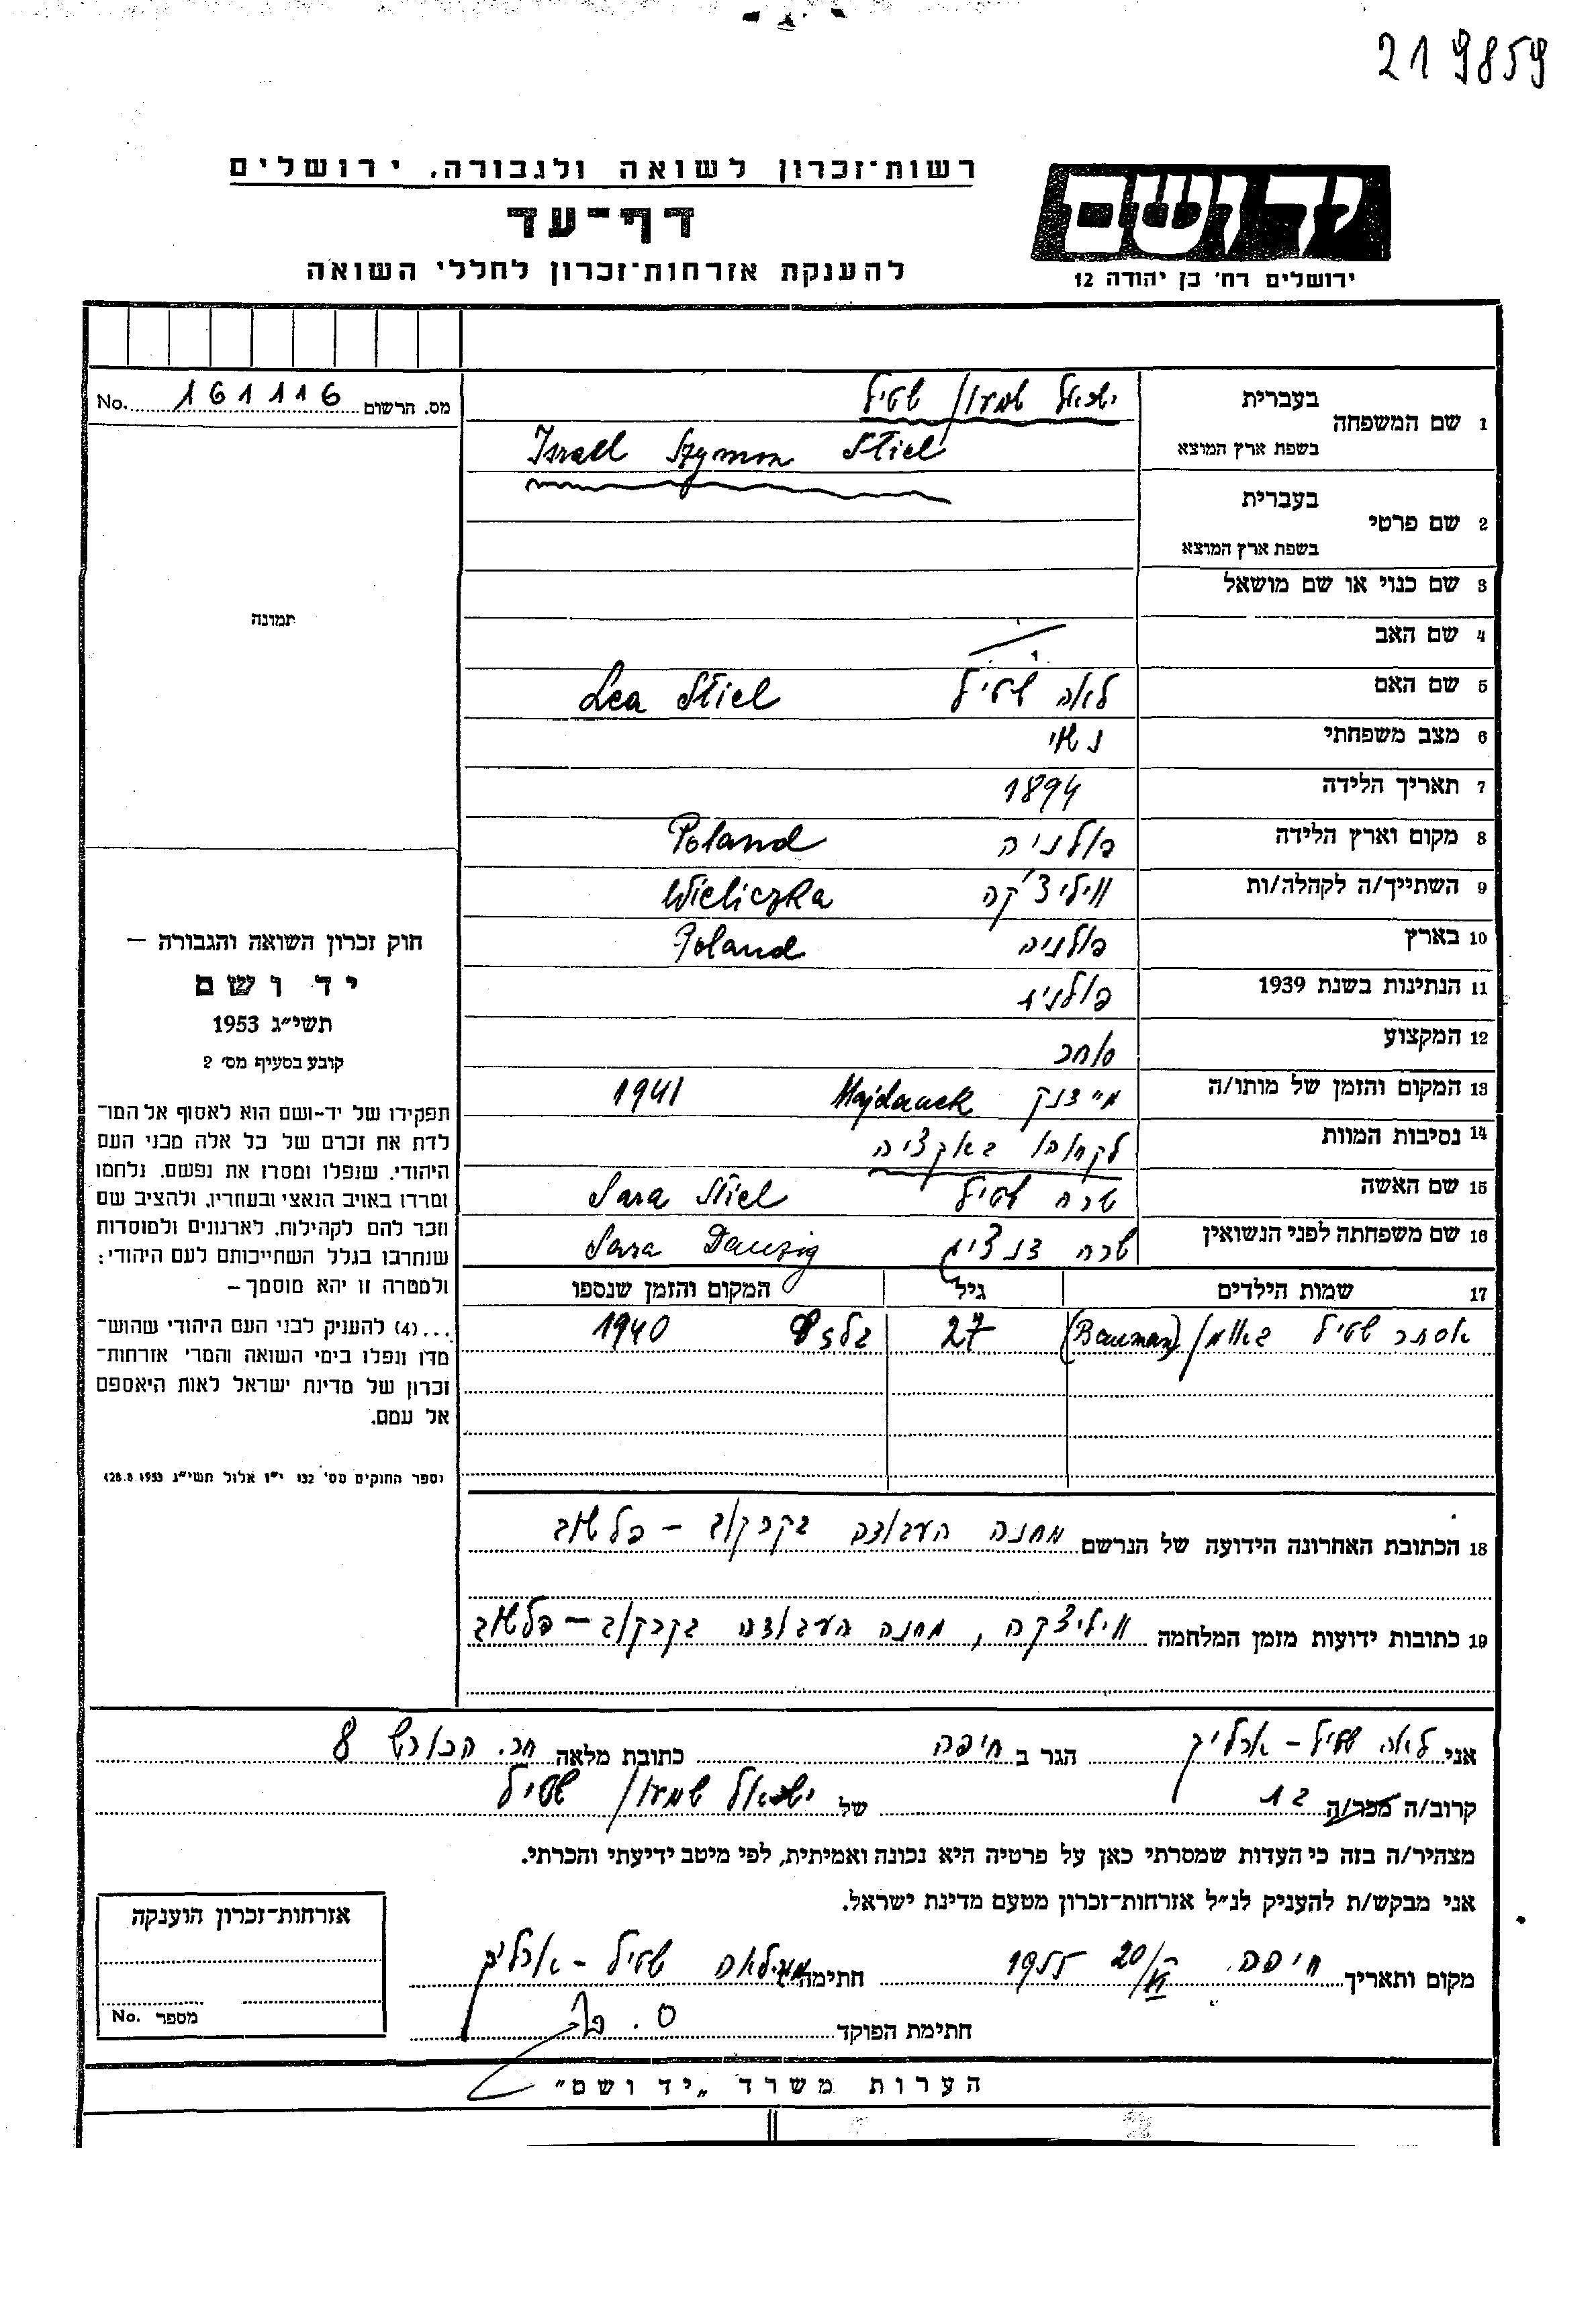 219859
רשות־זכרון לשואה ולגבורה, ירושלים
יד ושם
דף־עד
להענקת אזרחות־זכרון לחללי השואה
ירושלים רח' בן יהודה 12
מס. הרשום 161116 No.
1 שם המשפחה
בעברית ישראל שמעון שטיל
בשפת ארץ המוצא Israel Szymon Stiel
2 שם פרטי
בעברית
בשפת ארץ המוצא
3 שם כנוי או שם מושאל
4 שם האב
5 שם האם לאה שטיל Lea Stiel
6 מצב משפחתי נשוי
7 תאריך הלידה 1894
8 מקום וארץ הלידה פולניה Poland
9 השתייך/ה לקהלה/ות ויליצ'קה Wieliczka
10 בארץ פולניה Poland
11 הנתינות בשנת 1939 פולנית
12 המקצוע סוחר
13 המקום והזמן של מותו/ה מיידנק Majdanek 1941
14 נסיבות המוות לקחוהו באקציה
15 שם האשה שרה שטיל Sara Stiel
16 שם משפחתה לפני הנשואין שרה דנציג Sara Danzig
17 שמות הילדים גיל המקום והזמן שנספו
אסתר שטיל באומן (Bauman) 27 בלזץ 1940
תמונה
חוק זכרון השואה והגבורה –
יד ושם
תשי"ג 1953
קובע בסעיף מס' 2
תפקידו של יד-ושם הוא לאסוף אל המו־
לדת את זכרם של כל אלה מבני העם
היהודי, שנפלו ומסרו את נפשם, נלחמו
ומרדו באויב הנאצי ובעוזריו, ולהציב שם
וזכר להם לקהילות, לארגונים ולמוסדות
שנחרבו בגלל השתייכותם לעם היהודי;
ולמטרה זו יהא מוסמך –
...(4) להעניק לבני העם היהודי שהוש־
מדו ונפלו בימי השואה והמרי אזרחות־
זכרון של מדינת ישראל לאות היאספם
אל עמם.
(ספר החוקים מס' 132 י"ז אלול תשי"ג 28.8.1953)
18 הכתובת האחרונה הידועה של הנרשם מחנה העבודה בקרקוב – פלשוב
19 כתובות ידועות מזמן המלחמה ויליצקה, מחנה העבודה בקרקוב – פלשוב
אני לאה שטיל – ארליך הגר ב חיפה כתובת מלאה רח. הבורש 8
קרוב/ה מכר/ה בת של ישראל שמעון שטיל
מצהיר/ה בזה כי העדות שמסרתי כאן על פרטיה היא נכונה ואמיתית, לפי מיטב ידיעתי והכרתי.
אני מבקש/ת להעניק לנ"ל אזרחות־זכרון מטעם מדינת ישראל.
מקום ותאריך חיפה 20/VI 1955 חתימה לאה שטיל – ארליך
חתימת הפוקד
אזרחות־זכרון הוענקה
מספר No.
הערות משרד „יד ושם"